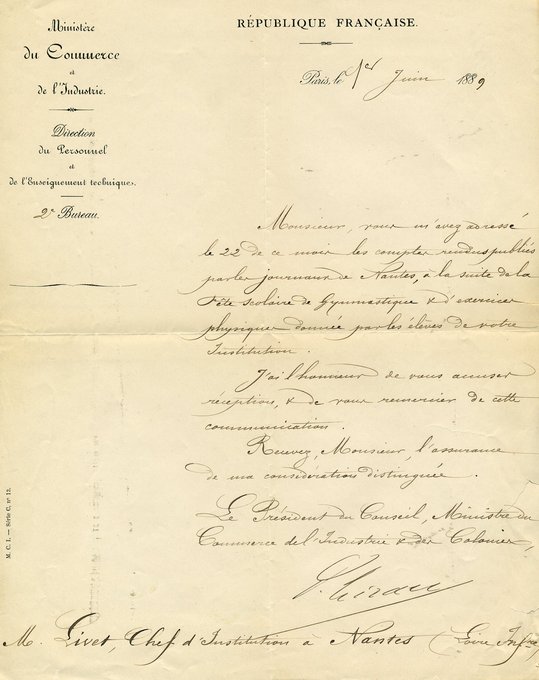 Ministère
du Commerce
et
de l'Industrie.
Direction
du Personnel
et
de l'Enseignement technique.
2e Bureau.
RÉPUBLIQUE FRANÇAISE.
Paris, le 1er Juin 1889
Monsieur, vous m'avez adressé
le 22 de ce mois les comptes rendus publiés
par les journaux de Nantes, à la suite de la
Fête scolaire de Gymnastique & d'exercices
physiques donnée par les élèves de votre
Institution.
J'ai l'honneur de vous accuser
réception, & de vous remercier de cette
communication.
Recevez, Monsieur, l'assurance
de ma considération distinguée.
Le Président du Conseil, Ministre du
Commerce de l'Industrie & des Colonies,
P. Tirard
M. Livet, Chef d'Institution à Nantes (Loire Infre)
M. C. I. — Série C, n° 12.